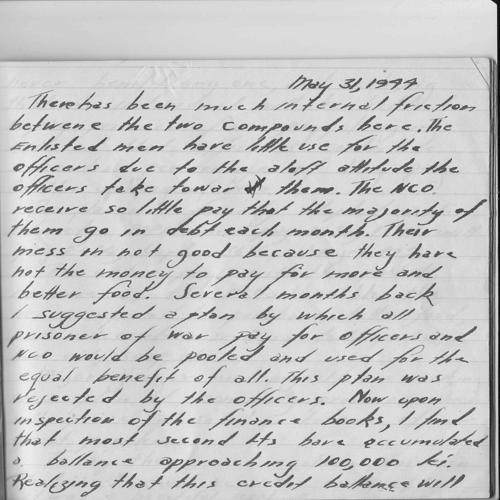 May 31, 1944
There has been much internal friction
betwene the two compounds here. The
Enlisted men have little use for the
officers due to the aloft attitude the
officers take towar them. The NCO
receive so little pay that the majority of
them go in debt each month. Their
mess in not good because they have
not the money to pay for more and
better food. Several months back
I suggested a plan by which all
prisoner of war pay for officers and
NCO would be pooled and used for the
equal benefit of all. This plan was
rejected by the officers. Now upon
inspection of the finance books, I find
that most second Lts have accumulated
a ballance approaching 100,000 lei.
Realizing that this credit ballance will